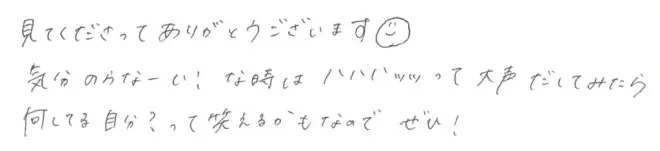 見てくださってありがとうございます☺
気分のらなーい!な時は ハハハッッッって大声だしてみたら
何してる自分?って笑えるかもなので ぜひ!